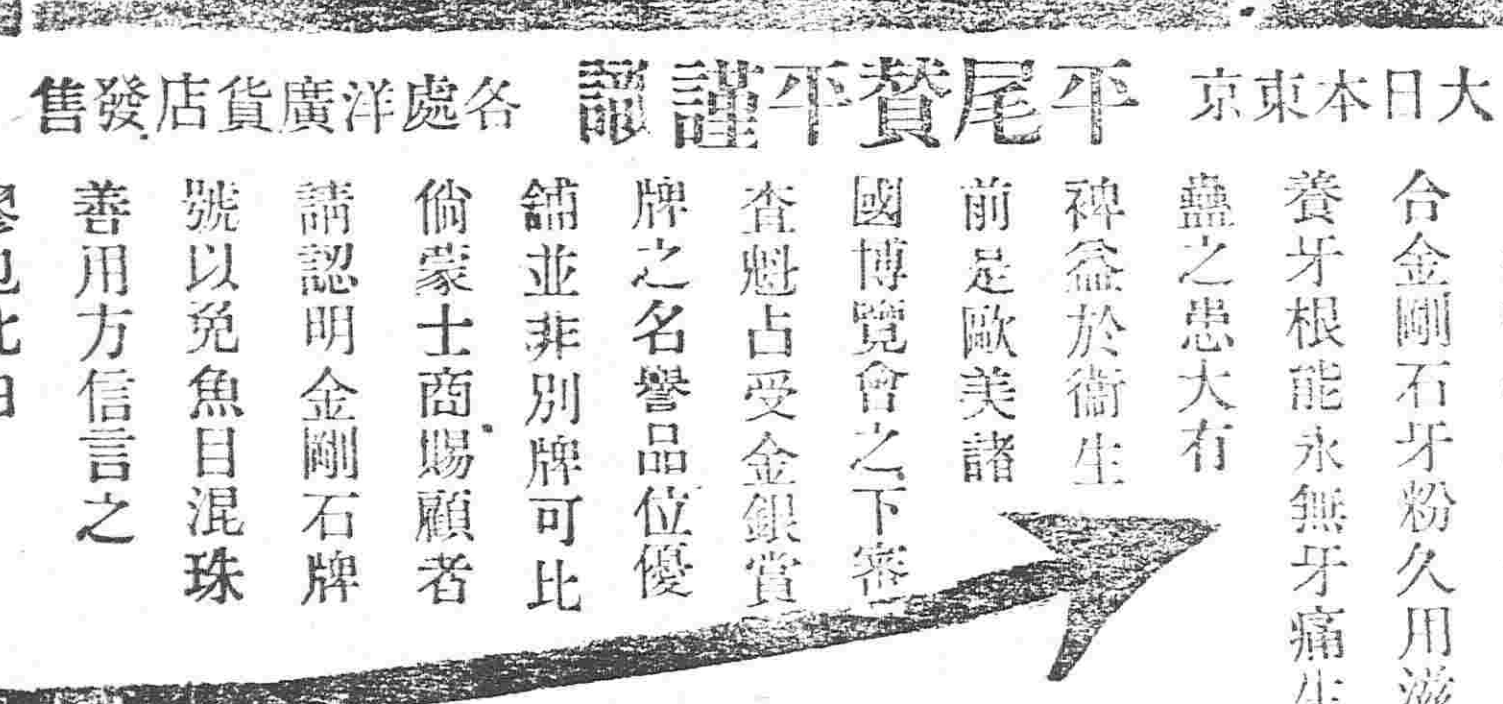 大日本東京
平尾賛平謹識
各處洋廣貨店發售
合金剛石牙粉久用滋
養牙根能永無牙痛生
蠱之患大有
裨益於衞生
前是歐美諸
國博覽會之下審
査魁占受金銀賞
牌之名譽品位優
舖並非別牌可比
倘蒙士商賜顧者
請認明金剛石牌
號以免魚目混珠
善用方信言之